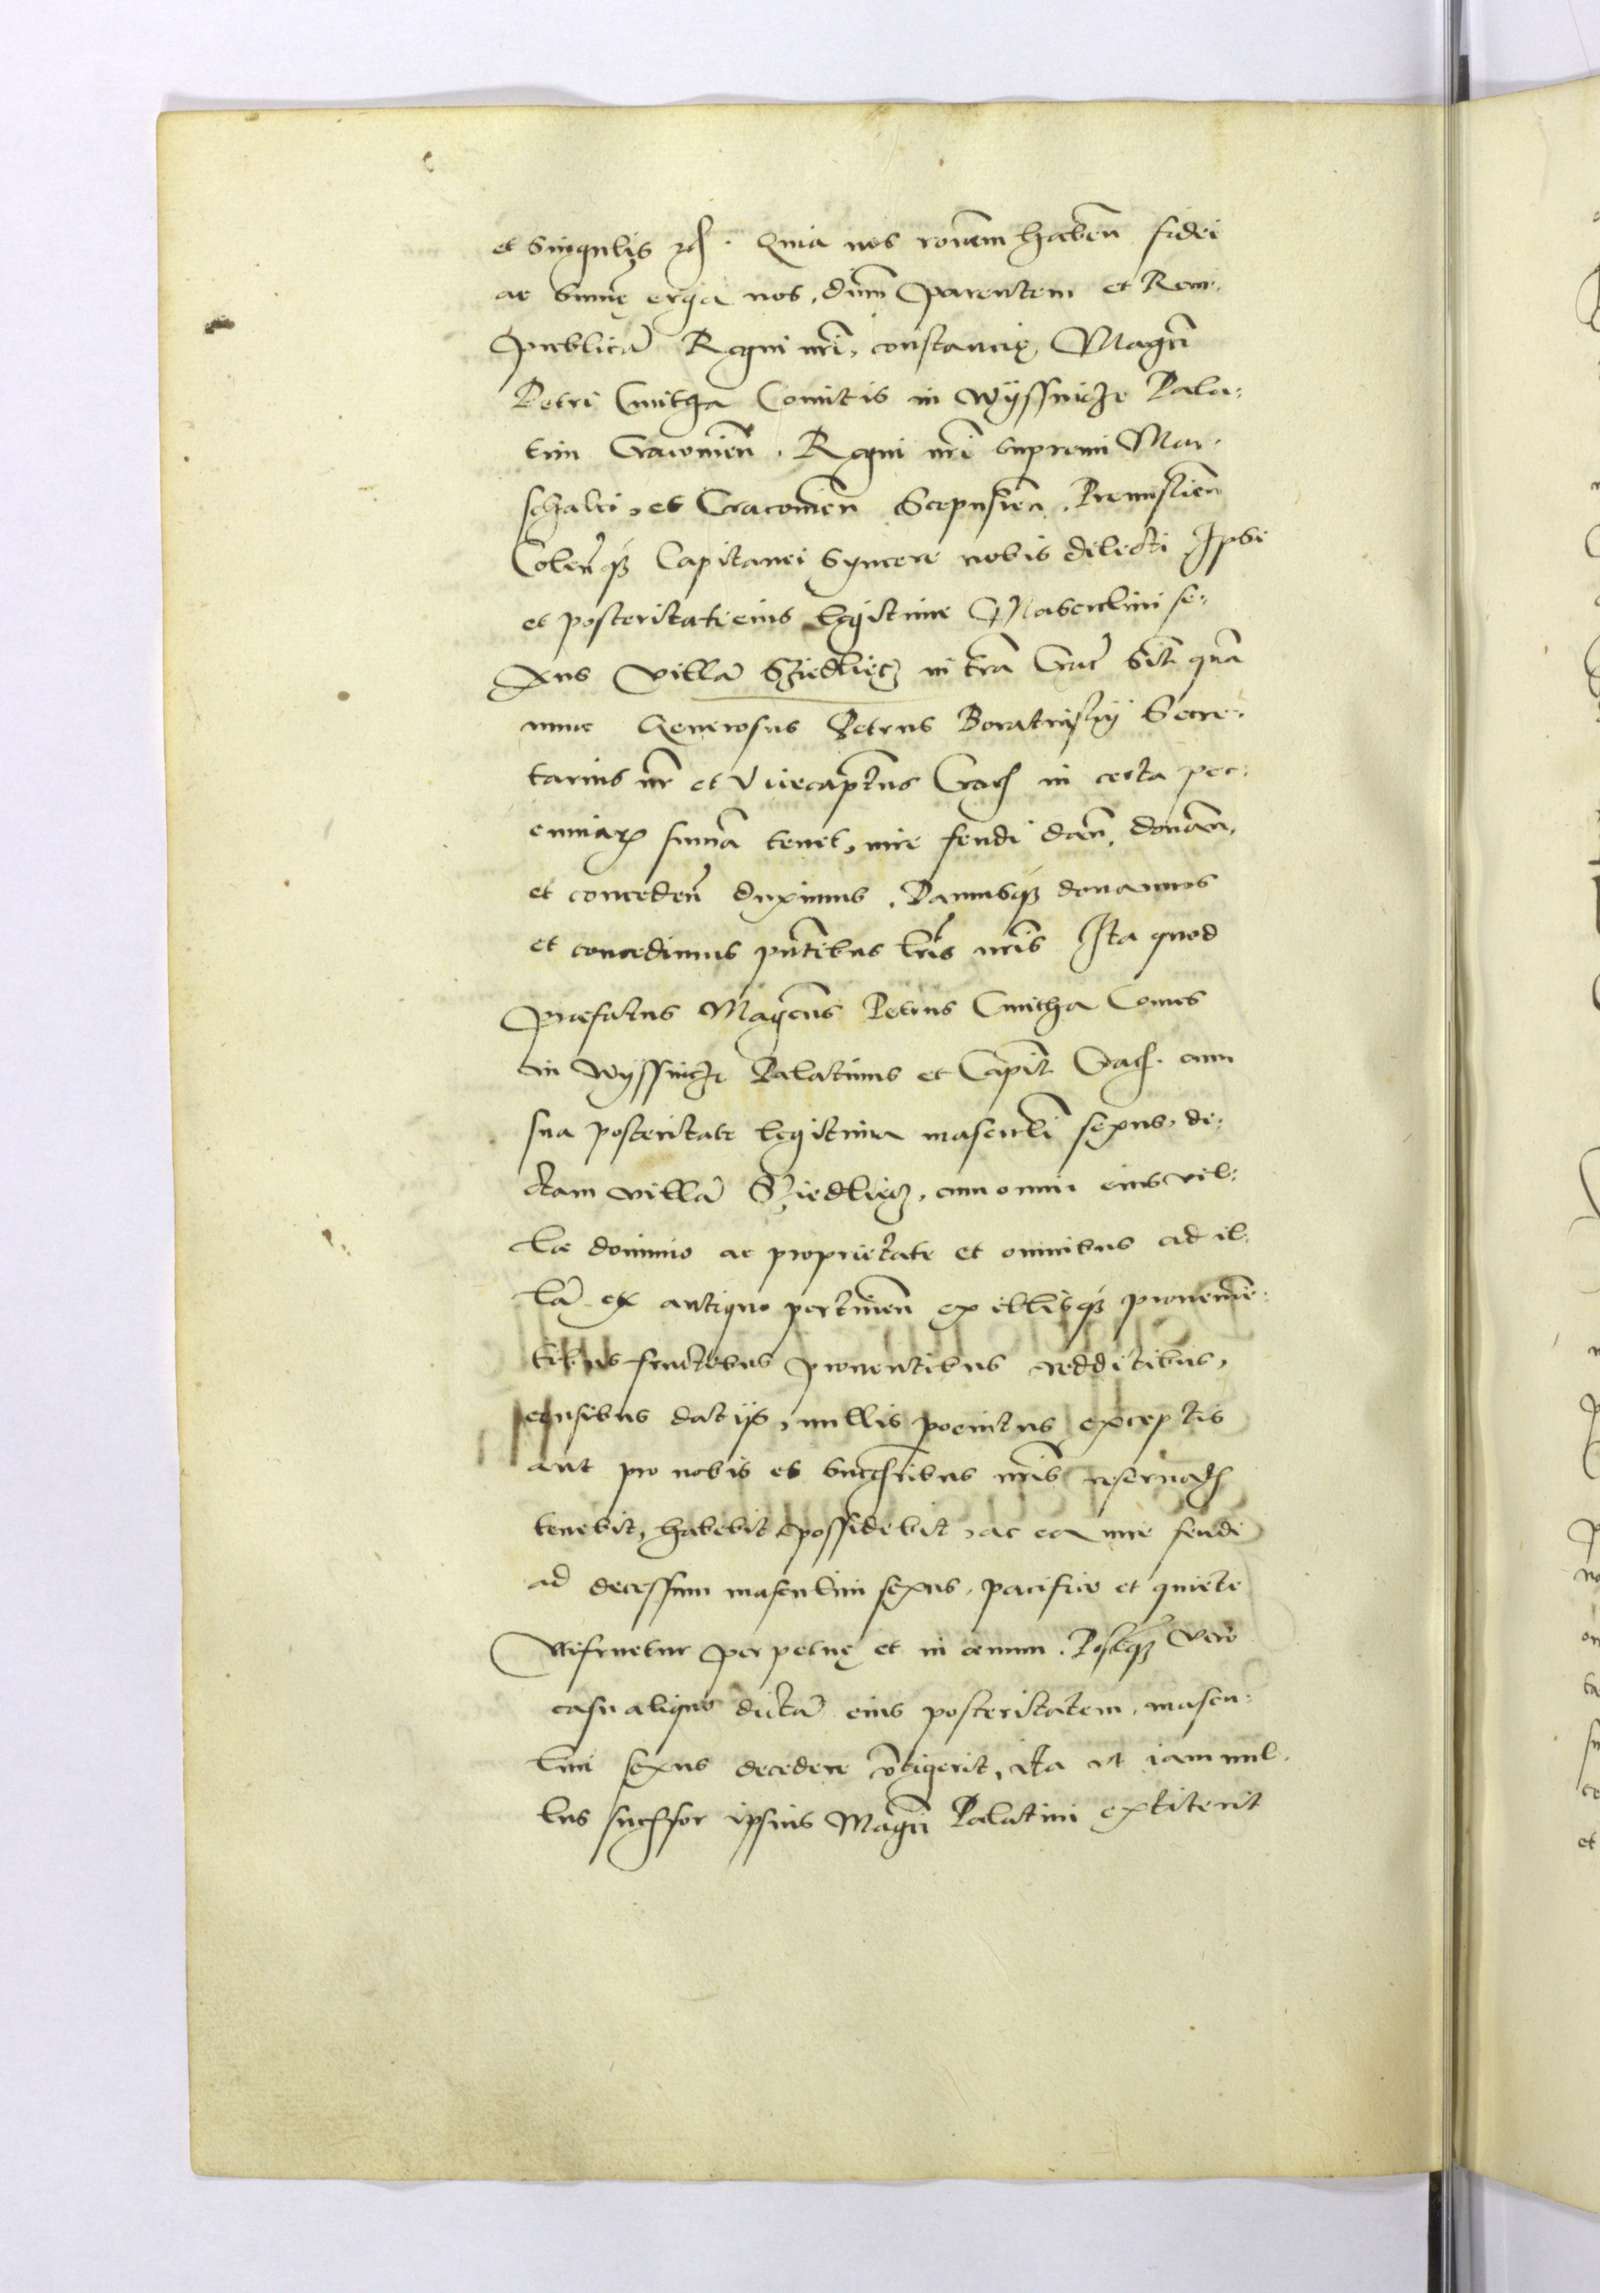 et singulis etc. Quia nos rōnem habeñ fidei
ac summę erga nos, dnm̄ parentem et Rem
publicā Regni nrī, constanciȩ, Magci
Petri Cmitha Comitis in Wyssnicze Pala:
tini Cracovieñ. Regni nrī supremi Mar:
schalci, et Cracovieñ Scepusieñ. Premislieñ
Coleñqȝ Capitanei syncere nobis dilecti Ipsi
et posteritati eius legitime Masculini se:
xus villā Sziedliecz in trā Crac̄ sitā quā
nunc Generosus Petrus Boratinsky Secre:
tarius nr̄ et Vicecaptnus Crac̄ in certa pec:
cuniarꝫ summa tenet, iure feudi dañ, donañ,
et concedeñ duximus. Damusqȝ donamus
et concedimus pñtibus lrīs nrīs Ita quod
præfatus Magcus Petrus Cmitha Comes
in Wyssnicze Palatinus et Capit̄ Crac̄. cum
sua posteritate legitima masculi sexus, di:
ctam villā Sziedliecz, cum omni eius vil:
læ dominio ac proprietate et omnibus ad il:
lā ex antiquo pertineñ ex illisqȝ provenien:
tibus fructibus proventibus redditibus,
censibus datijs, nullis poenitus exceptis
aut pro nobis et succrībus nrīs reservatꝭ
tenebit, habebit possidebit, ac ea iure feudi
ad decessum masculini sexus, pacifice et quiete
utifruetur perpetuę et in ævum. Postqȝ vero
casu aliquo dictā eius posteritatem, mascu:
lini sexus decedere ɔtigerit, ita ut iam nul:
lus succssor ipsius Magci Palatini extiterit